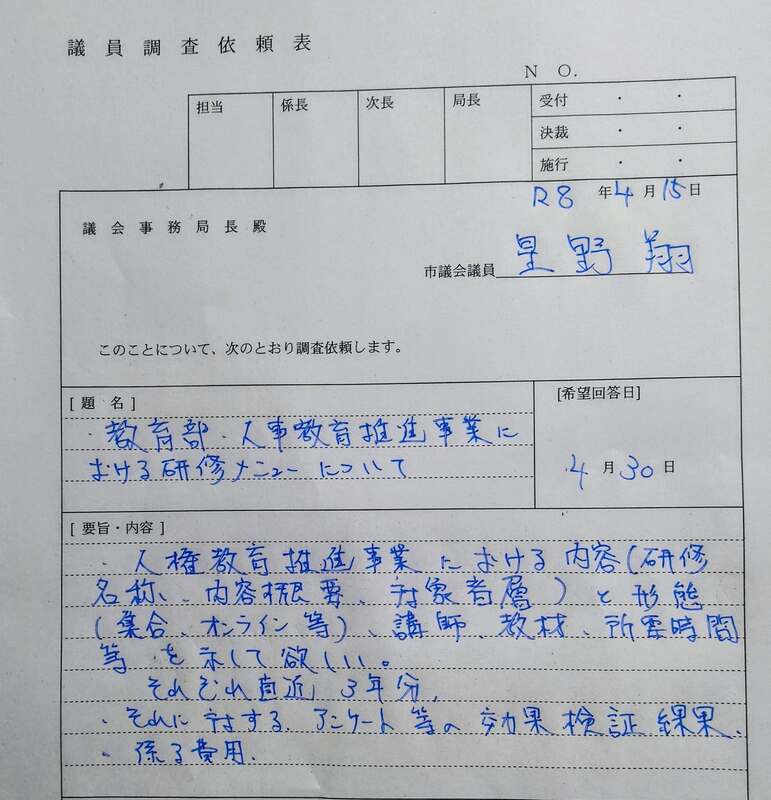 議員調査依頼表
NO.
担当 係長 次長 局長 受付 ・ ・
決裁 ・ ・
施行 ・ ・
R8 年 4 月 15 日
議会事務局長殿
市議会議員 星野 翔
このことについて、次のとおり調査依頼します。
[ 題 名 ]
[希望回答日]
・教育部・人事教育推進事業に
おける研修メニューについて
4 月 30 日
[ 要旨・内容 ]
・人権教育推進事業における内容(研修
名称、内容概要、対象者層)と形態
(集合、オンライン等)、講師、教材、所要時間
等を示して欲しい。
それぞれ直近3年分、
・それに対するアンケート等の効果検証結果、
・係る費用.